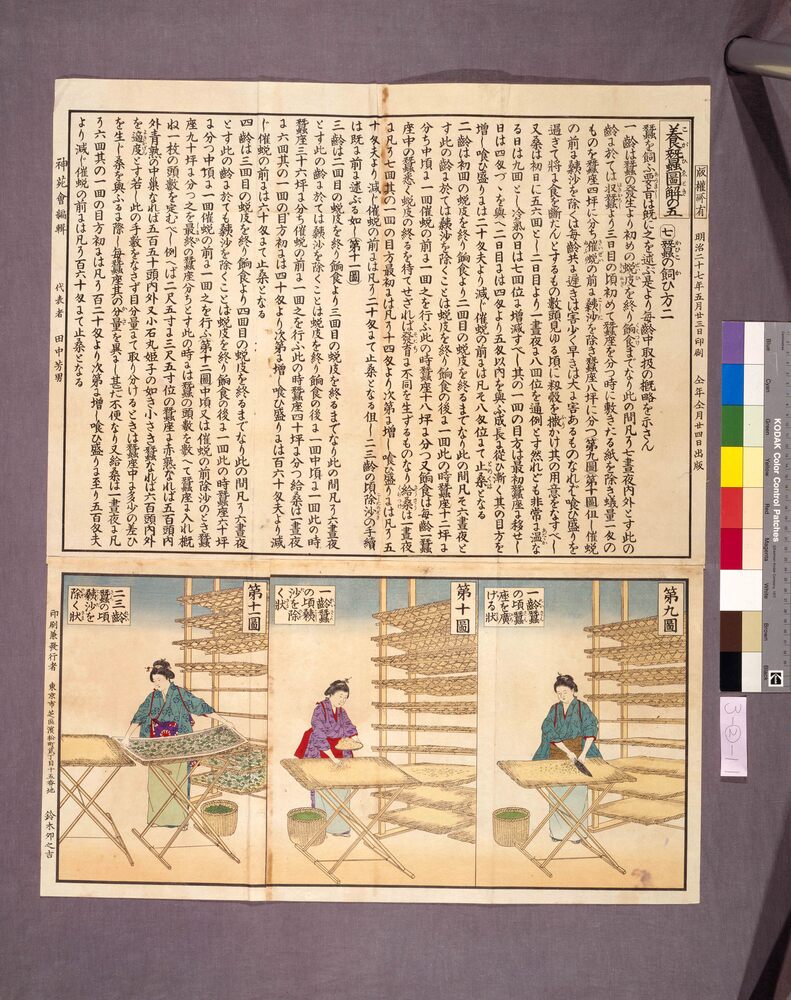 版權所有
明治二十七年五月廿三日印刷 仝年仝月廿四日出版
養蠶圖解の五
七 蠶の飼ひ方二
蠶を飼ふ要旨は既に之を述ぶ是より毎齡中取扱の概略を示さん
一齡は蠶の發生より初めの蛻皮を終り餉食までなり此の間凡り七晝夜内外とす此の
齡ま於ては収蠶より三日目の頃初めて蠶座を分つ時に敷きたる紙を除き蟻量一匁の
ものを蠶座四坪に分ち催蛻の前ま䗶沙を除き蠶座八坪に分つ第九圖第十圖但し催蛻
の前ま䗶沙を除くは毎齡共ま遲きは害少く早きは大ま害あるものなれぞ喰ひ盛りを
過ぎて將ま食を斷たんとするもの數頭見ゆる頃に粗穀を撒かけ其の用意をなすべし
又桑は初日に五六回とし二日目より一晝夜ま八回位を通例とす然れども非常ま溫な
る日は九回とし冷氣の日は七回位ま増減すべし其の一回の目方は最初蠶座ま移せし
日は四匁づゝを與へ二日目まは四匁より五匁以内を與ふ成長ま從ひ漸く其の目方を
増し喰ひ盛りまは二十匁夫より減し催蛻の前まは凡そ八匁位まて止桑となる
二齡は初回の蛻皮を終り餉食より二回目の蛻皮を終るまでなり此の間凡そ六晝夜と
す此の齡ま於ては䗶沙を除くことは蛻皮を終り餉食の後ま一回此の時蠶座十二坪ま
分ち中頃ま一回催蛻の前ま一回之を行ふ此の時蠶座十八坪ま分つ又餉食は毎齡一蠶
座中の蠶悉く蛻皮の終るを待てせざれば發育ま不同を生ずるものなり給桑は一晝夜
ま凡り七回其の一回の目方最初まは凡り十四匁より次第ま増し喰ひ盛りまは凡り五
十匁夫より減じ催蛻の前まは凡り二十匁まて止桑となる但し二三齡の頃除沙の手續
は既ま前ま述ぶる如し第十一圖
三齡は二回目の蛻皮を終り餉食より三回目の蛻皮を終るまでなり此の間凡り六晝夜
とす此の齡ま於ては䗶沙を除くことは蛻皮を終り餉食の後ま一回中頃ま一回此の時
蠶座三十六坪ま分ち催蛻の前ま一回之を行ふ此の時蠶座四十坪ま分つ給桑は一晝夜
ま六回其の一回の目方初まは四十匁より次第ま増し喰ひ盛りまは百六十匁夫より減
じ催蛻の前まは六十匁まて止桑となる
四齡は三回目の蛻皮を終り餉食より四回目の蛻皮を終るまでなり此の間凡り六晝夜
とす此の齡ま於ても䗶沙を除くことは蛻皮を終り餉食の後ま一回此の時蠶座六十坪
ま分つ中頃ま一回催蛻の前ま一回之を行ふ第十二圖中頃又は催蛻の前除沙のとき蠶
座九十坪ま分つ之を最終の蠶座分ちとす此の時まは蠶の頭數を數へて蠶座ま入れ概
ね一枚の頭數を定むべし例へば二尺五寸ま三尺五寸位の蠶座ま赤熟なれば五百頭内
外青熟の中巣なれば五百五十頭内外又小石丸姫子の如き小さき蠶なれば六百頭内外
を適度とす若し此の手數をなさず目分量まて取り分けるときは蠶座中ま多少の差ひ
を生じ桑を與ふるま際し毎蠶座其の分量を異まし甚だ不便なり又給桑は一晝夜ま凡
り六回其の一回の目方初まは凡り百二十匁より次第ま増し喰ひ盛りま至り五百匁夫
より減じ催蛻の前まは凡り百六十匁まて止桑となる
神苑會編輯 代表者 田中芳男
第九圖
一齡蠶の頃蠶座を廣げる狀
第十圖
一齡蠶の頃䗶沙を除く狀
第十一圖
二三齡蠶の頃䗶沙を除く狀
印刷兼發行者 東京市芝區濱松町貳丁目十五番地 鈴木卯之吉
KODAK Color Control Patches
Blue
Cyan
Green
Yellow
Red
Magenta
White
Brown
Black
3-(2)-1